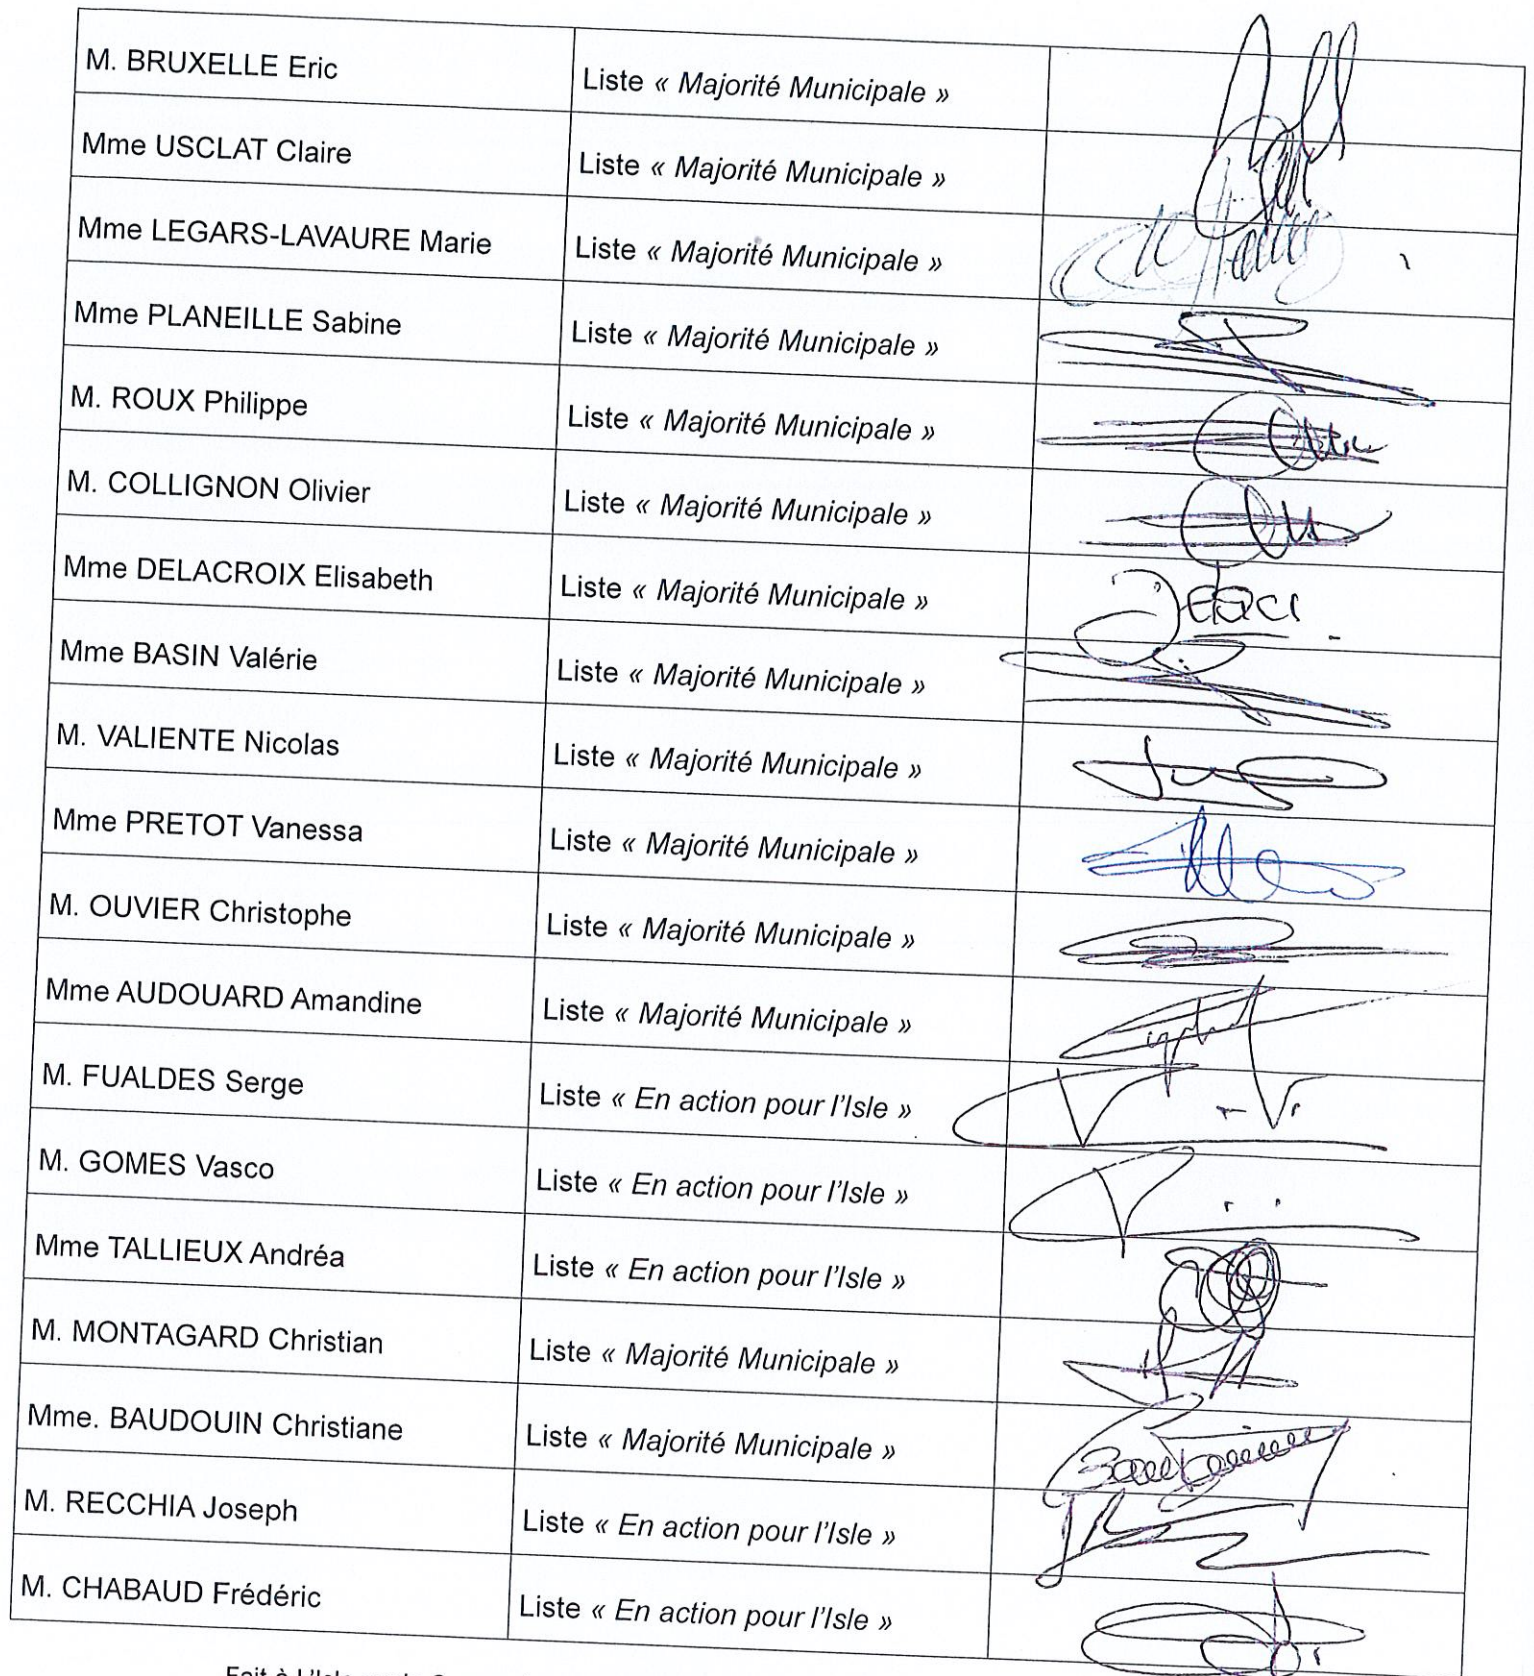 M. BRUXELLE Eric Liste « Majorité Municipale »
Mme USCLAT Claire Liste « Majorité Municipale »
Mme LEGARS-LAVAURE Marie Liste « Majorité Municipale »
Mme PLANEILLE Sabine Liste « Majorité Municipale »
M. ROUX Philippe Liste « Majorité Municipale »
M. COLLIGNON Olivier Liste « Majorité Municipale »
Mme DELACROIX Elisabeth Liste « Majorité Municipale »
Mme BASIN Valérie Liste « Majorité Municipale »
M. VALIENTE Nicolas Liste « Majorité Municipale »
Mme PRETOT Vanessa Liste « Majorité Municipale »
M. OUVIER Christophe Liste « Majorité Municipale »
Mme AUDOUARD Amandine Liste « Majorité Municipale »
M. FUALDES Serge Liste « En action pour l'Isle »
M. GOMES Vasco Liste « En action pour l'Isle »
Mme TALLIEUX Andréa Liste « En action pour l'Isle »
M. MONTAGARD Christian Liste « Majorité Municipale »
Mme. BAUDOUIN Christiane Liste « Majorité Municipale »
M. RECCHIA Joseph Liste « En action pour l'Isle »
M. CHABAUD Frédéric Liste « En action pour l'Isle »
Fait à